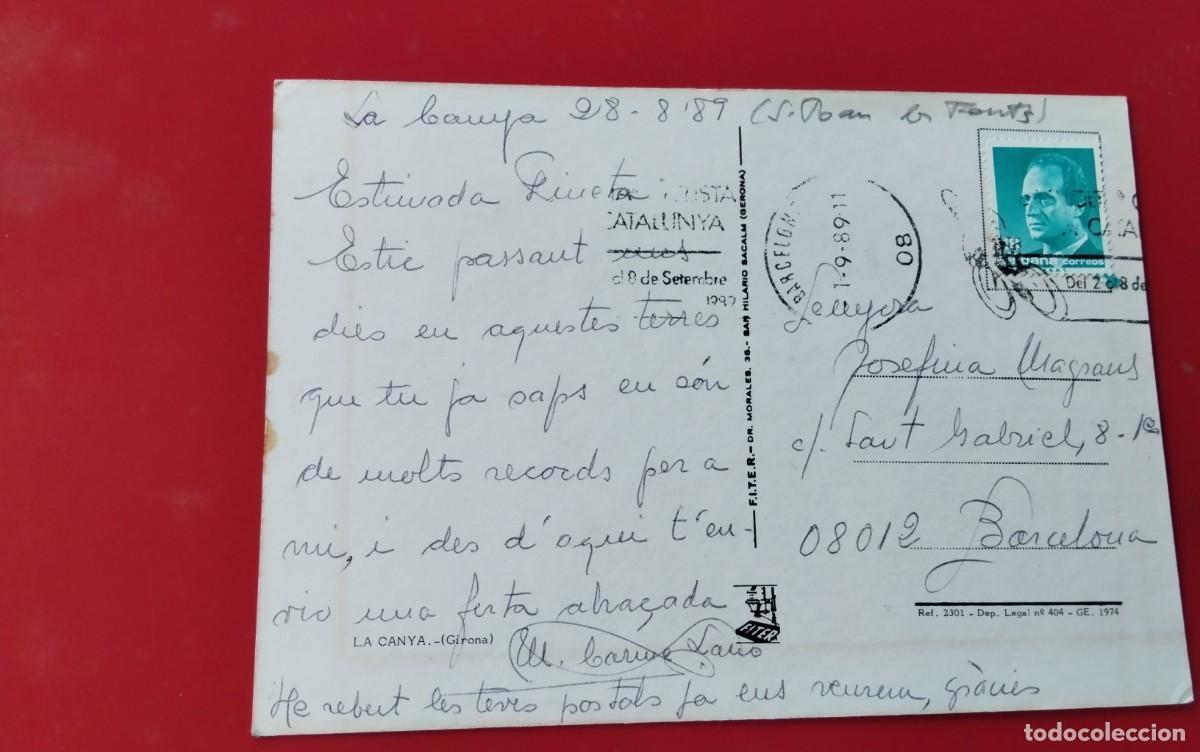 La Canya 28-8'89 (S. Joan les Fonts)
Estimada Fineta:
Estic passant unos
dies en aquestes terres
que tu ja saps en són
de molts records per a
mi, i des d'aqui t'en-
vio una forta abraçada
M. Carme
He rebut les teves postals ja ens veurem, gràcies
LA CANYA.-(Girona)
CATALUNYA
al 8 de Setembre
1989
F.I.T.E.R.- DR. MORALES, 36.- SAN HILARIO SACALM (GERONA)
BARCELONA
1-9-89-11
08
España correos
Del 2 al 8 de
Senyora
Josefina Magrans
c/. Sant Gabriel, 8-1er
08012 Barcelona
FITER
Ref. 2301 - Dep. Legal nº 404 - GE. 1974
todocoleccion